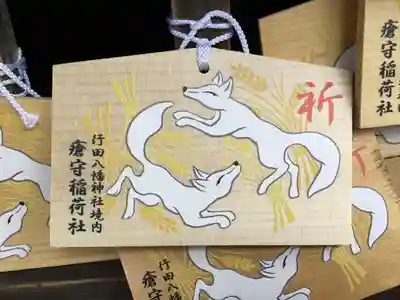 祈
行田八幡神社境内
瘡守稲荷社
瘡守稲荷社
行田八幡
瘡守